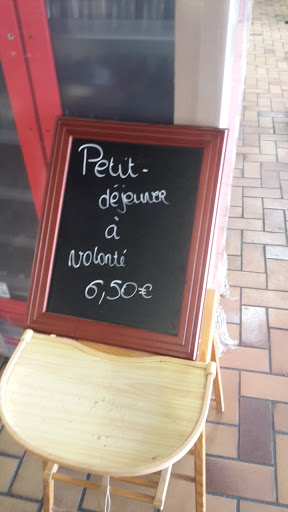 Petit-
déjeuner
à
volonté
6,50€